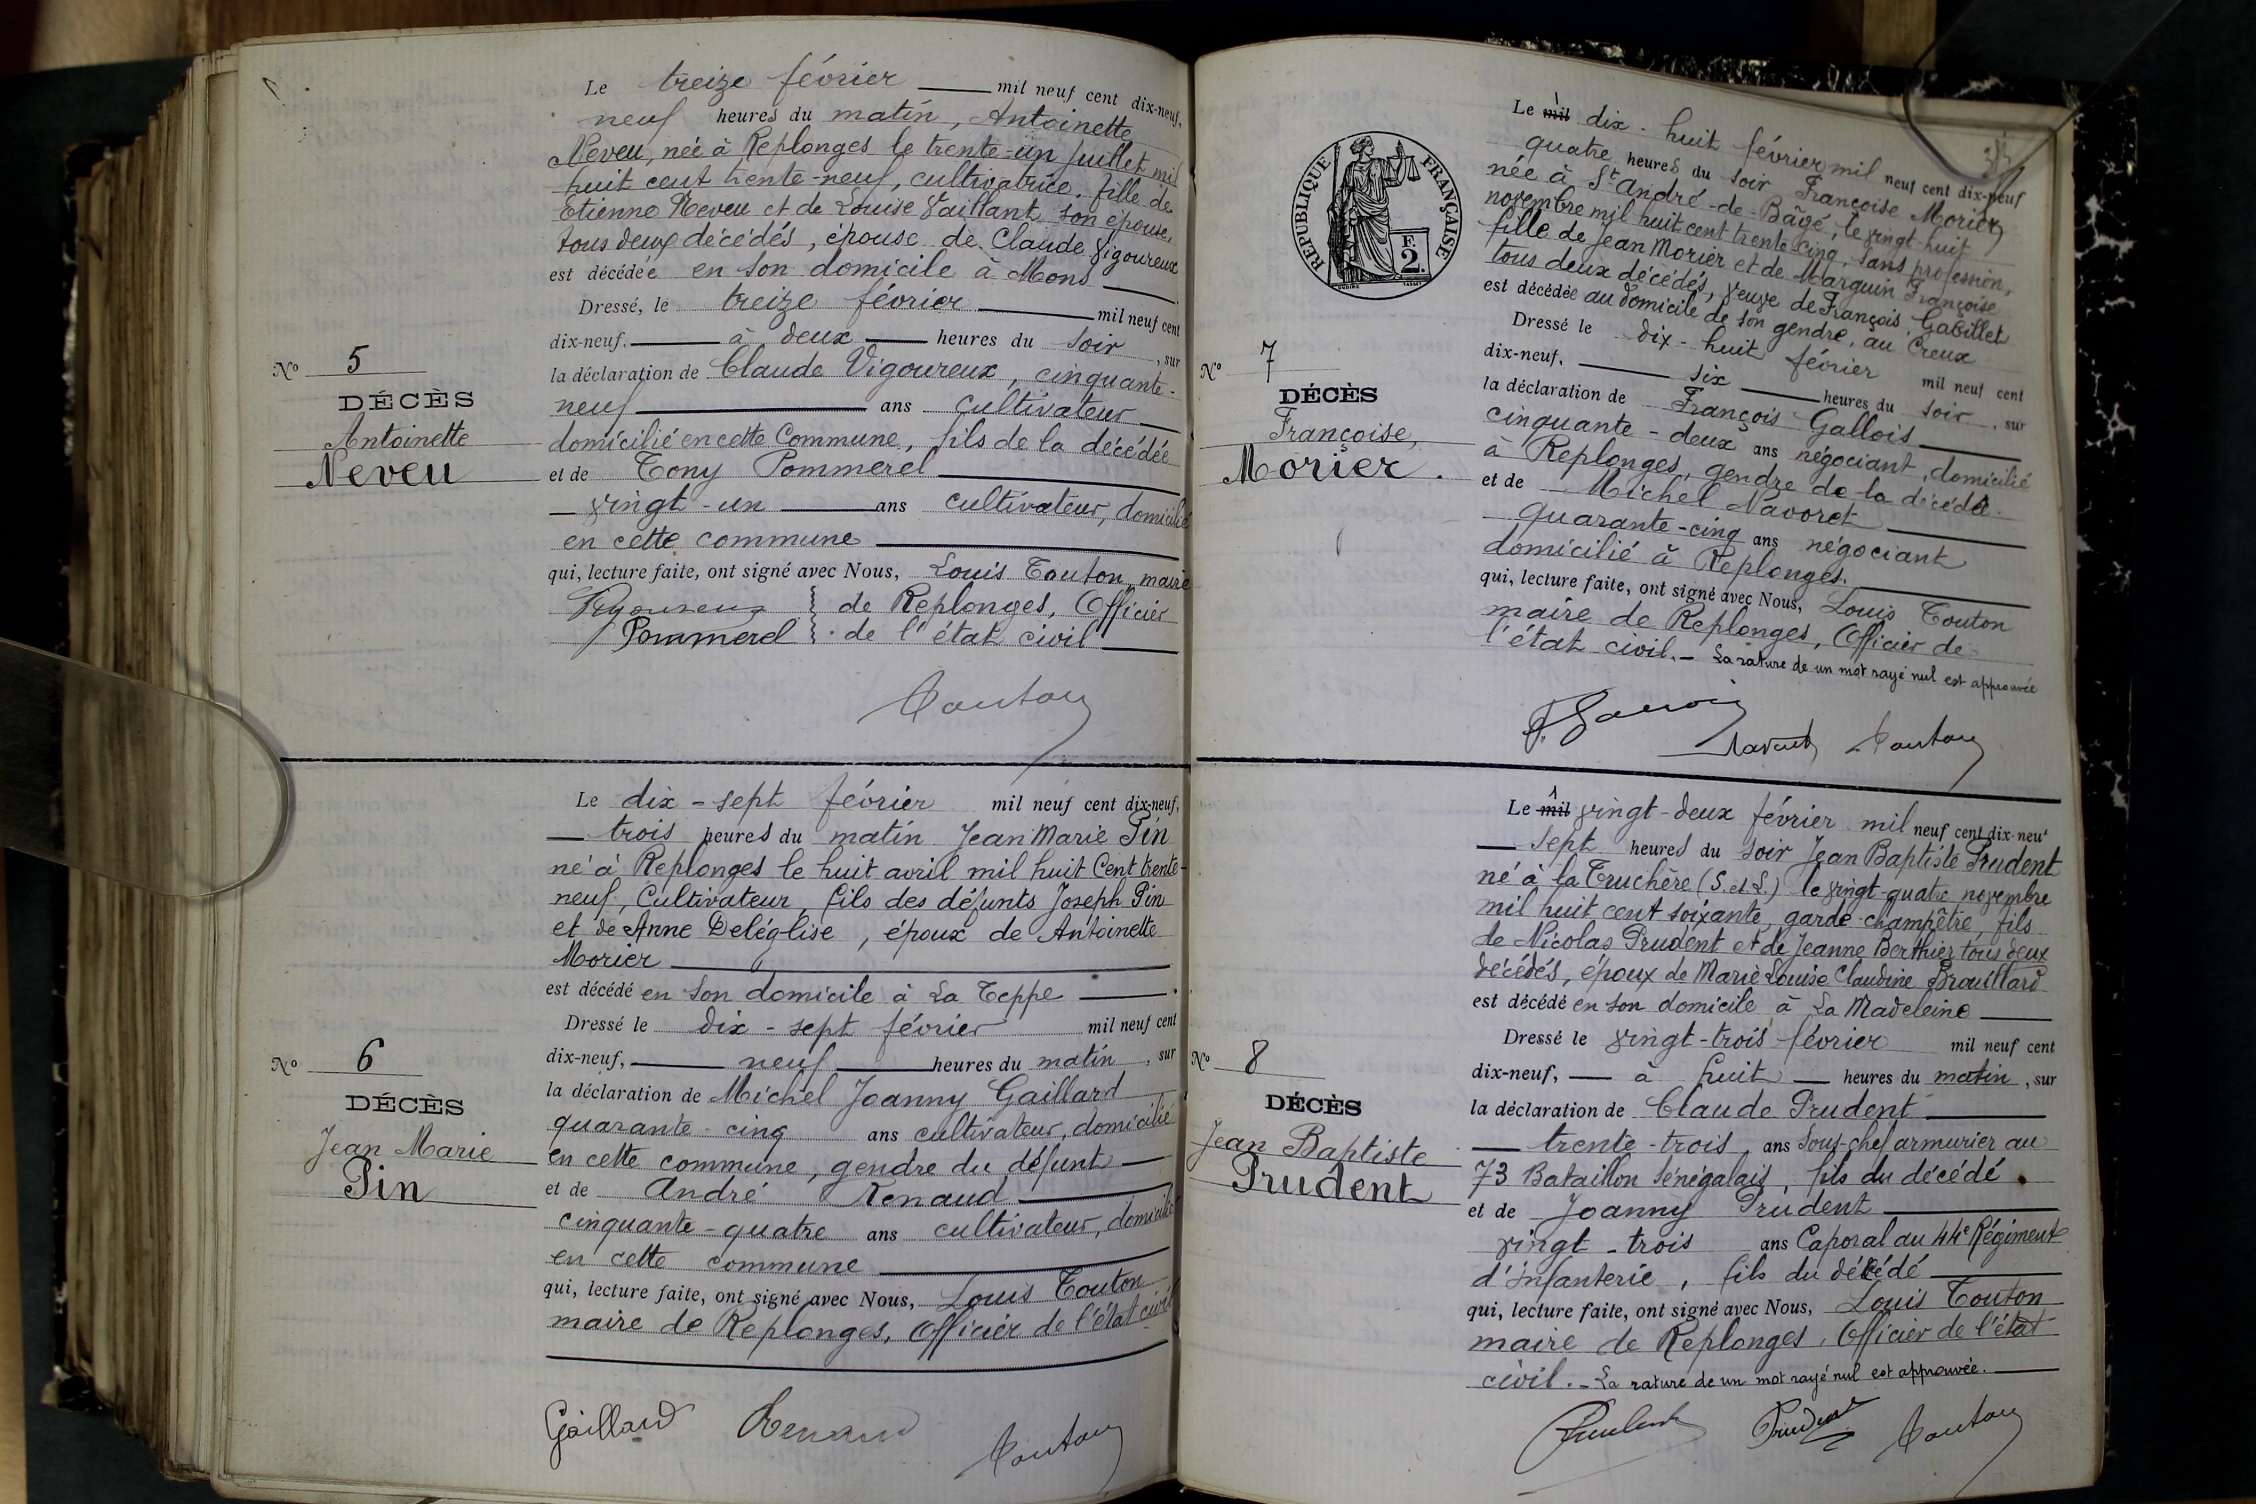 Le treize février mil neuf cent dix-neuf,
neuf heures du matin, Antoinette
Neveu, née à Replonges le trente-un juillet mil
huit cent trente-neuf, cultivatrice, fille de
Etienne Neveu et de Louise Vaillant son épouse,
tous deux décédés, épouse de Claude Vigoureux
est décédée en son domicile à Mons
Dressé, le treize février mil neuf cent
dix-neuf. à deux heures du soir, sur
la déclaration de Claude Vigoureux, cinquante-
neuf ans cultivateur
domicilié en cette Commune, fils de la décédée
et de Tony Pommerel
vingt-un ans cultivateur, domicilié
en cette commune
qui, lecture faite, ont signé avec Nous, Louis Touton, maire
de Replonges, Officier
Pommerel de l'état civil
Touton
No 5
DÉCÈS
Antoinette
Neveu
Le dix-sept février mil neuf cent dix-neuf,
trois heures du matin Jean Marie Pin
né à Replonges le huit avril mil huit Cent trente-
neuf, Cultivateur, fils des défunts Joseph Pin
et de Anne Deléglise, époux de Antoinette
Morier
est décédé en son domicile à La Teppe
Dressé le dix-sept février mil neuf cent
dix-neuf, neuf heures du matin, sur
la déclaration de Michel Joanny Gaillard
quarante-cinq ans cultivateur, domicilié
en cette commune, gendre du défunt
et de André Renaud
cinquante-quatre ans cultivateur, domicilié
en cette commune
qui, lecture faite, ont signé avec Nous, Louis Touton
maire de Replonges, Officier de l'état civil
Gaillard Renaud Touton
No 6
DÉCÈS
Jean Marie
Pin
RÉPUBLIQUE FRANÇAISE
F
2.
Le mil dix-huit février mil neuf cent dix-neuf
quatre heures du soir Françoise Morier,
née à St André-de-Bâgé, le vingt-huit
novembre mil huit cent trente cinq, sans profession,
fille de Jean Morier et de Marguin Françoise
tous deux décédés, veuve de François Gabillet
est décédée au domicile de son gendre, au Creux
Dressé le dix-huit février mil neuf cent
dix-neuf, six heures du soir, sur
la déclaration de François Gallois
cinquante-deux ans négociant, domicilié
à Replonges, gendre de la décédée
et de Michel Navoret
quarante-cinq ans négociant
domicilié à Replonges.
qui, lecture faite, ont signé avec Nous, Louis Touton
maire de Replonges, Officier de
l'état civil.- La rature de un mot rayé nul est approuvée
Touton
No 7
DÉCÈS
Françoise,
Morier.
Le mil vingt-deux février mil neuf cent dix-neuf
sept heures du soir Jean Baptiste Prudent
né à la Truchère (S. et L.) le vingt-quatre novembre
mil huit cent soixante, garde-champêtre, fils
de Nicolas Prudent et de Jeanne Berthier tous deux
décédés, époux de Marie Louise Claudine Brouillard
est décédé en son domicile à La Madeleine
Dressé le vingt-trois février mil neuf cent
dix-neuf, à huit heures du matin, sur
la déclaration de Claude Prudent
trente-trois ans Sous-chef armurier au
73 Bataillon Sénégalais, fils du décédé.
et de Joanny Prudent
vingt-trois ans Caporal au 44e Régiment
d'infanterie, fils du décédé
qui, lecture faite, ont signé avec Nous, Louis Touton
maire de Replonges, Officier de l'état
civil.- La rature de un mot rayé nul est approuvée.
Prudent Prudent Touton
No 8
DÉCÈS
Jean Baptiste
Prudent